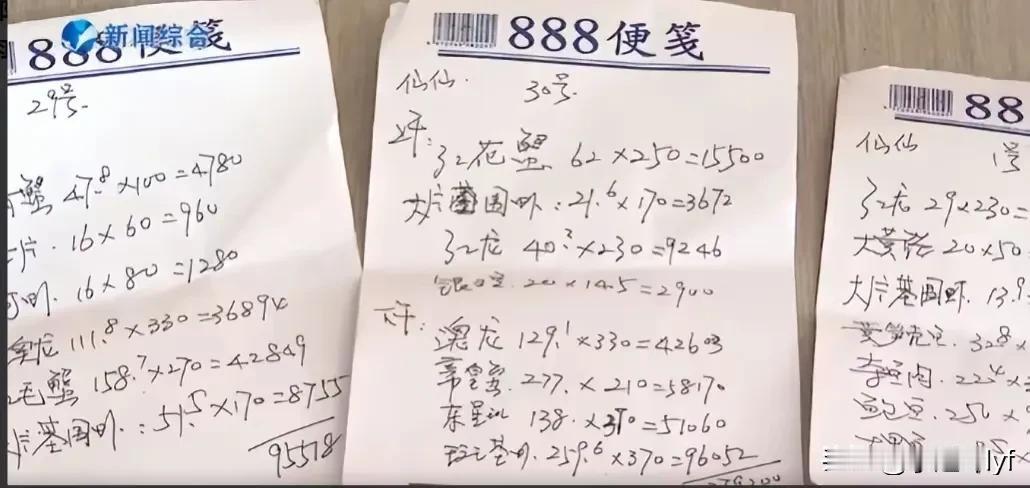 新闻综合
888便笺
29号.
蟹 47.8×100=4780
片. 16×60=960
虾. 16×80=1280
龙 111.8×330=36894
毛蟹 158.7×270=42849
片基围虾.: 51.5×170=8755
95518
888便笺
仙仙. 30号.
上午:
红花蟹 62×250=15500
大片基围虾: 21.6×170=3672
红龙 40.2×230=9246
20×145=2900
下午:
澳龙 129.1×330=42603
帝皇蟹. 277.×210=58170
东星斑 138.×370=51060
259.6×370=96052
888
仙仙 1号
红龙 29×230=
大黄 20×50
大片基围虾. 13.9
328×
224
250×
lyf